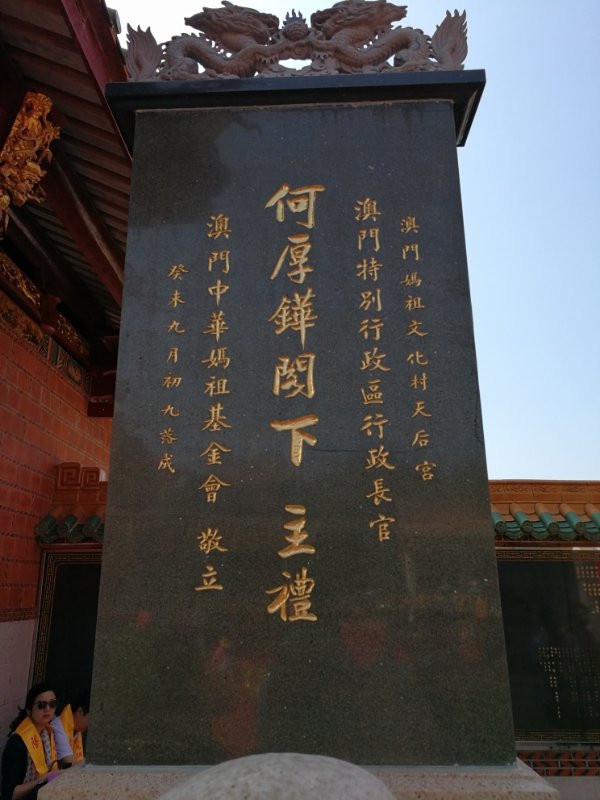 澳門媽祖文化村天后宮
澳門特別行政區行政長官
何厚鏵閣下 主禮
澳門中華媽祖基金會 敬立
癸未九月初九落成